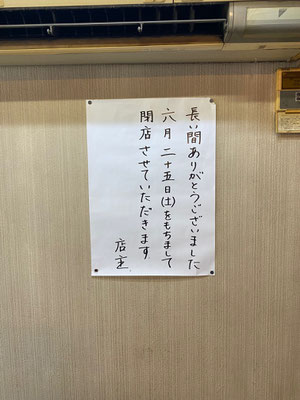 長い間ありがとうございました
六月二十五日(土)をもちまして
閉店させていただきます
店主